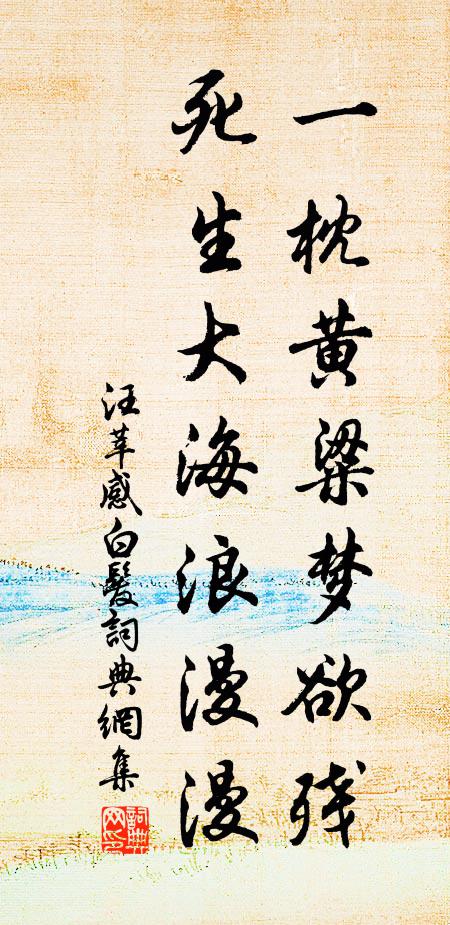 一枕黄粱梦欲残
死生大海浪漫漫
汪莘感白髮詞典網集
詞典网印